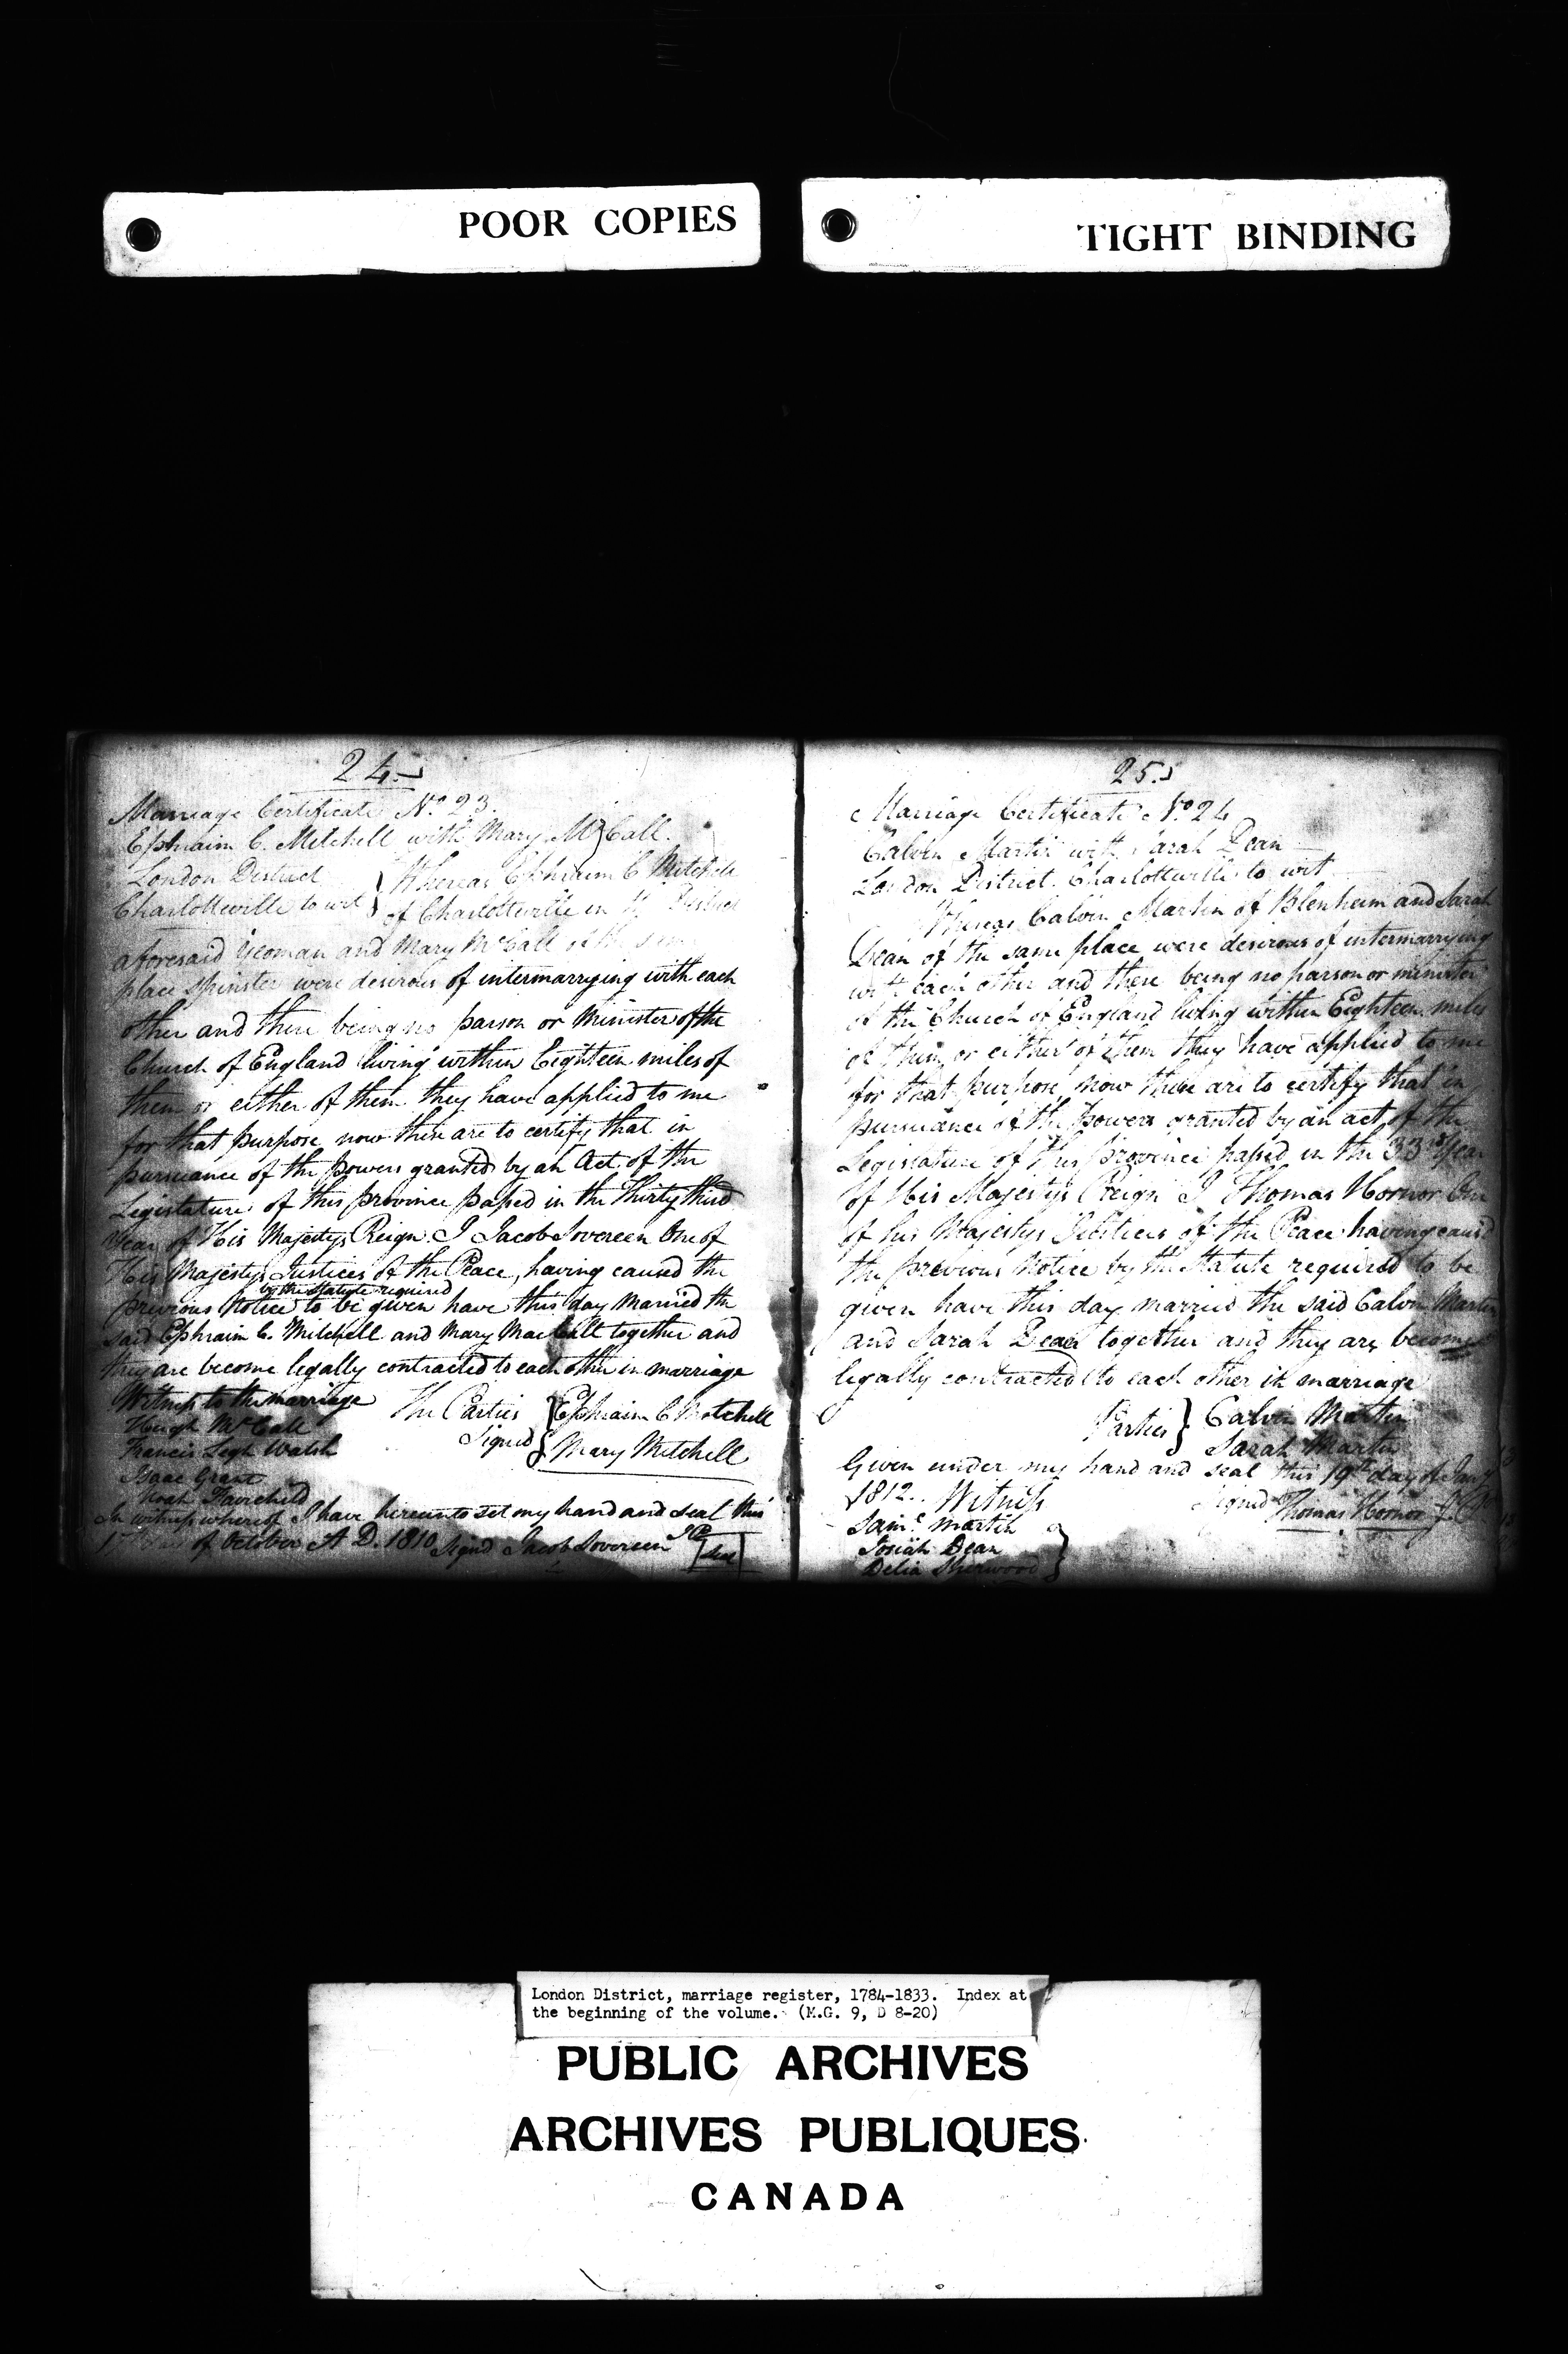 POOR COPIES
TIGHT BINDING
24
Marriage Certificate No. 23.
Ephraim C. Mitchell with Mary McCall.
London District
Charlotteville to wit
Whereas Ephraim C Mitchell
of Charlotteville in District
aforesaid Yeoman and Mary McCall of the
place Spinster were desirous of intermarrying with each
other and there being no parson or Minister of the
Church of England living within Eighteen miles of
them or either of them they have applied to me
for that purpose now these are to certify that in
pursuance of the powers granted by an Act of the
Legislature of this province passed in the Thirty third
Year of His Majestys Reign I Jacob Sovereen One of
His Majestys Justices of the Peace, having caused the
by the Statute required
previous Notice to be given have this day Married the
said Ephraim C. Mitchell and Mary MacCall together and
they are become legally contracted to each other in marriage
Witness to the marriage
Hugh McCall
Francis Legh Walsh
Isaac Grant
Noah Fairchild
The Parties Signed
Ephraim C Mitchell
Mary Mitchell
In witness whereof I have hereunto set my hand and seal this
17th day of October A D. 1810 Signd Jacob Sovereen JP
Seal
25
Marriage Certificate No 24
Calvin Martin with Sarah Dean
London District Charlotteville to wit
Whereas Calvin Martin of Blenheim and Sarah
Dean of the same place were desirous of intermarrying
with each other and there being no parson or minister
of the Church of England living within Eighteen miles
of them or either of them they have applied to me
for that purpose now these are to certify that in
pursuance of the powers granted by an act of the
Legislature of this province passed in the 33rd Year
of His Majestys Reign I Thomas Hornor One
of his Majestys Justices of the Peace having caused
the previous Notice by the Statute required to be
given have this day married the said Calvin Martin
and Sarah Dean together and they are become
legally contracted to each other in marriage
Parties
Calvin Martin
Sarah Martin
Given under my hand and seal this 19th day of Jany
1812. Witness
Signed Thomas Hornor
Saml Martin
Josiah Dean
Delia Sherwood
London District, marriage register, 1784-1833. Index at
the beginning of the volume. (M.G. 9, D 8-20)
PUBLIC ARCHIVES
ARCHIVES PUBLIQUES
CANADA